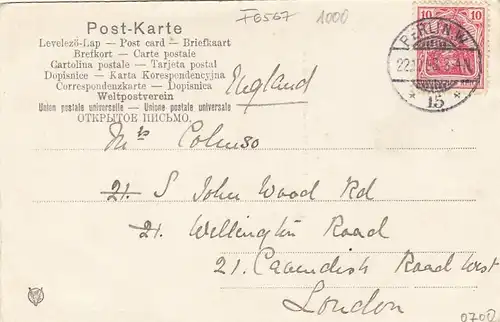 F6567 1000
Post-Karte
Levelező-Lap — Post card — Briefkaart
Brefkort — Carte postale
Cartolina postale — Tarjeta postal
Dopisnice — Karta Korespondencyjna
Correspondenzkarte — Dopisnica
Weltpostverein
Union postale universelle — Unione postale universale
ОТКРЫТОЕ ПИСЬМО.
England
10 10
BERLIN W.
15
Mrs Colenso
21. S John Wood Rd
21. Wellington Road
21. Cavendish Road West
London
0700